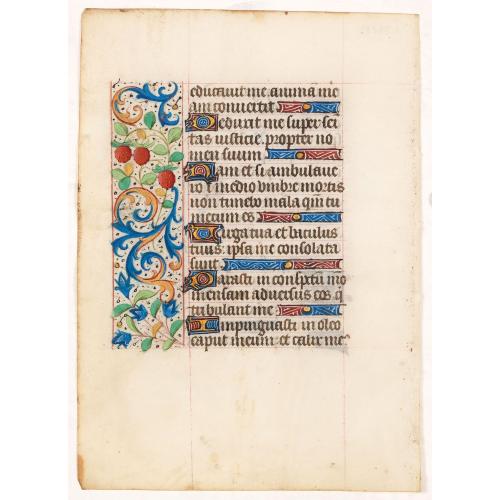 educavit me. animã me
am convertit
Deduxit me super semi
tas iusticie. propter no
men suum
Nam et si ambulave
ro ĩ medio umbre mortis
non timebo mala qm̃ tu
mecum es
Virga tua et baculus
tuus: ipsa me consolata
sunt
Parasti in conspectu mõ
mensam adversus eos q̃
tribulant me
Impinguasti in oleo
caput meum: et calix me⁹